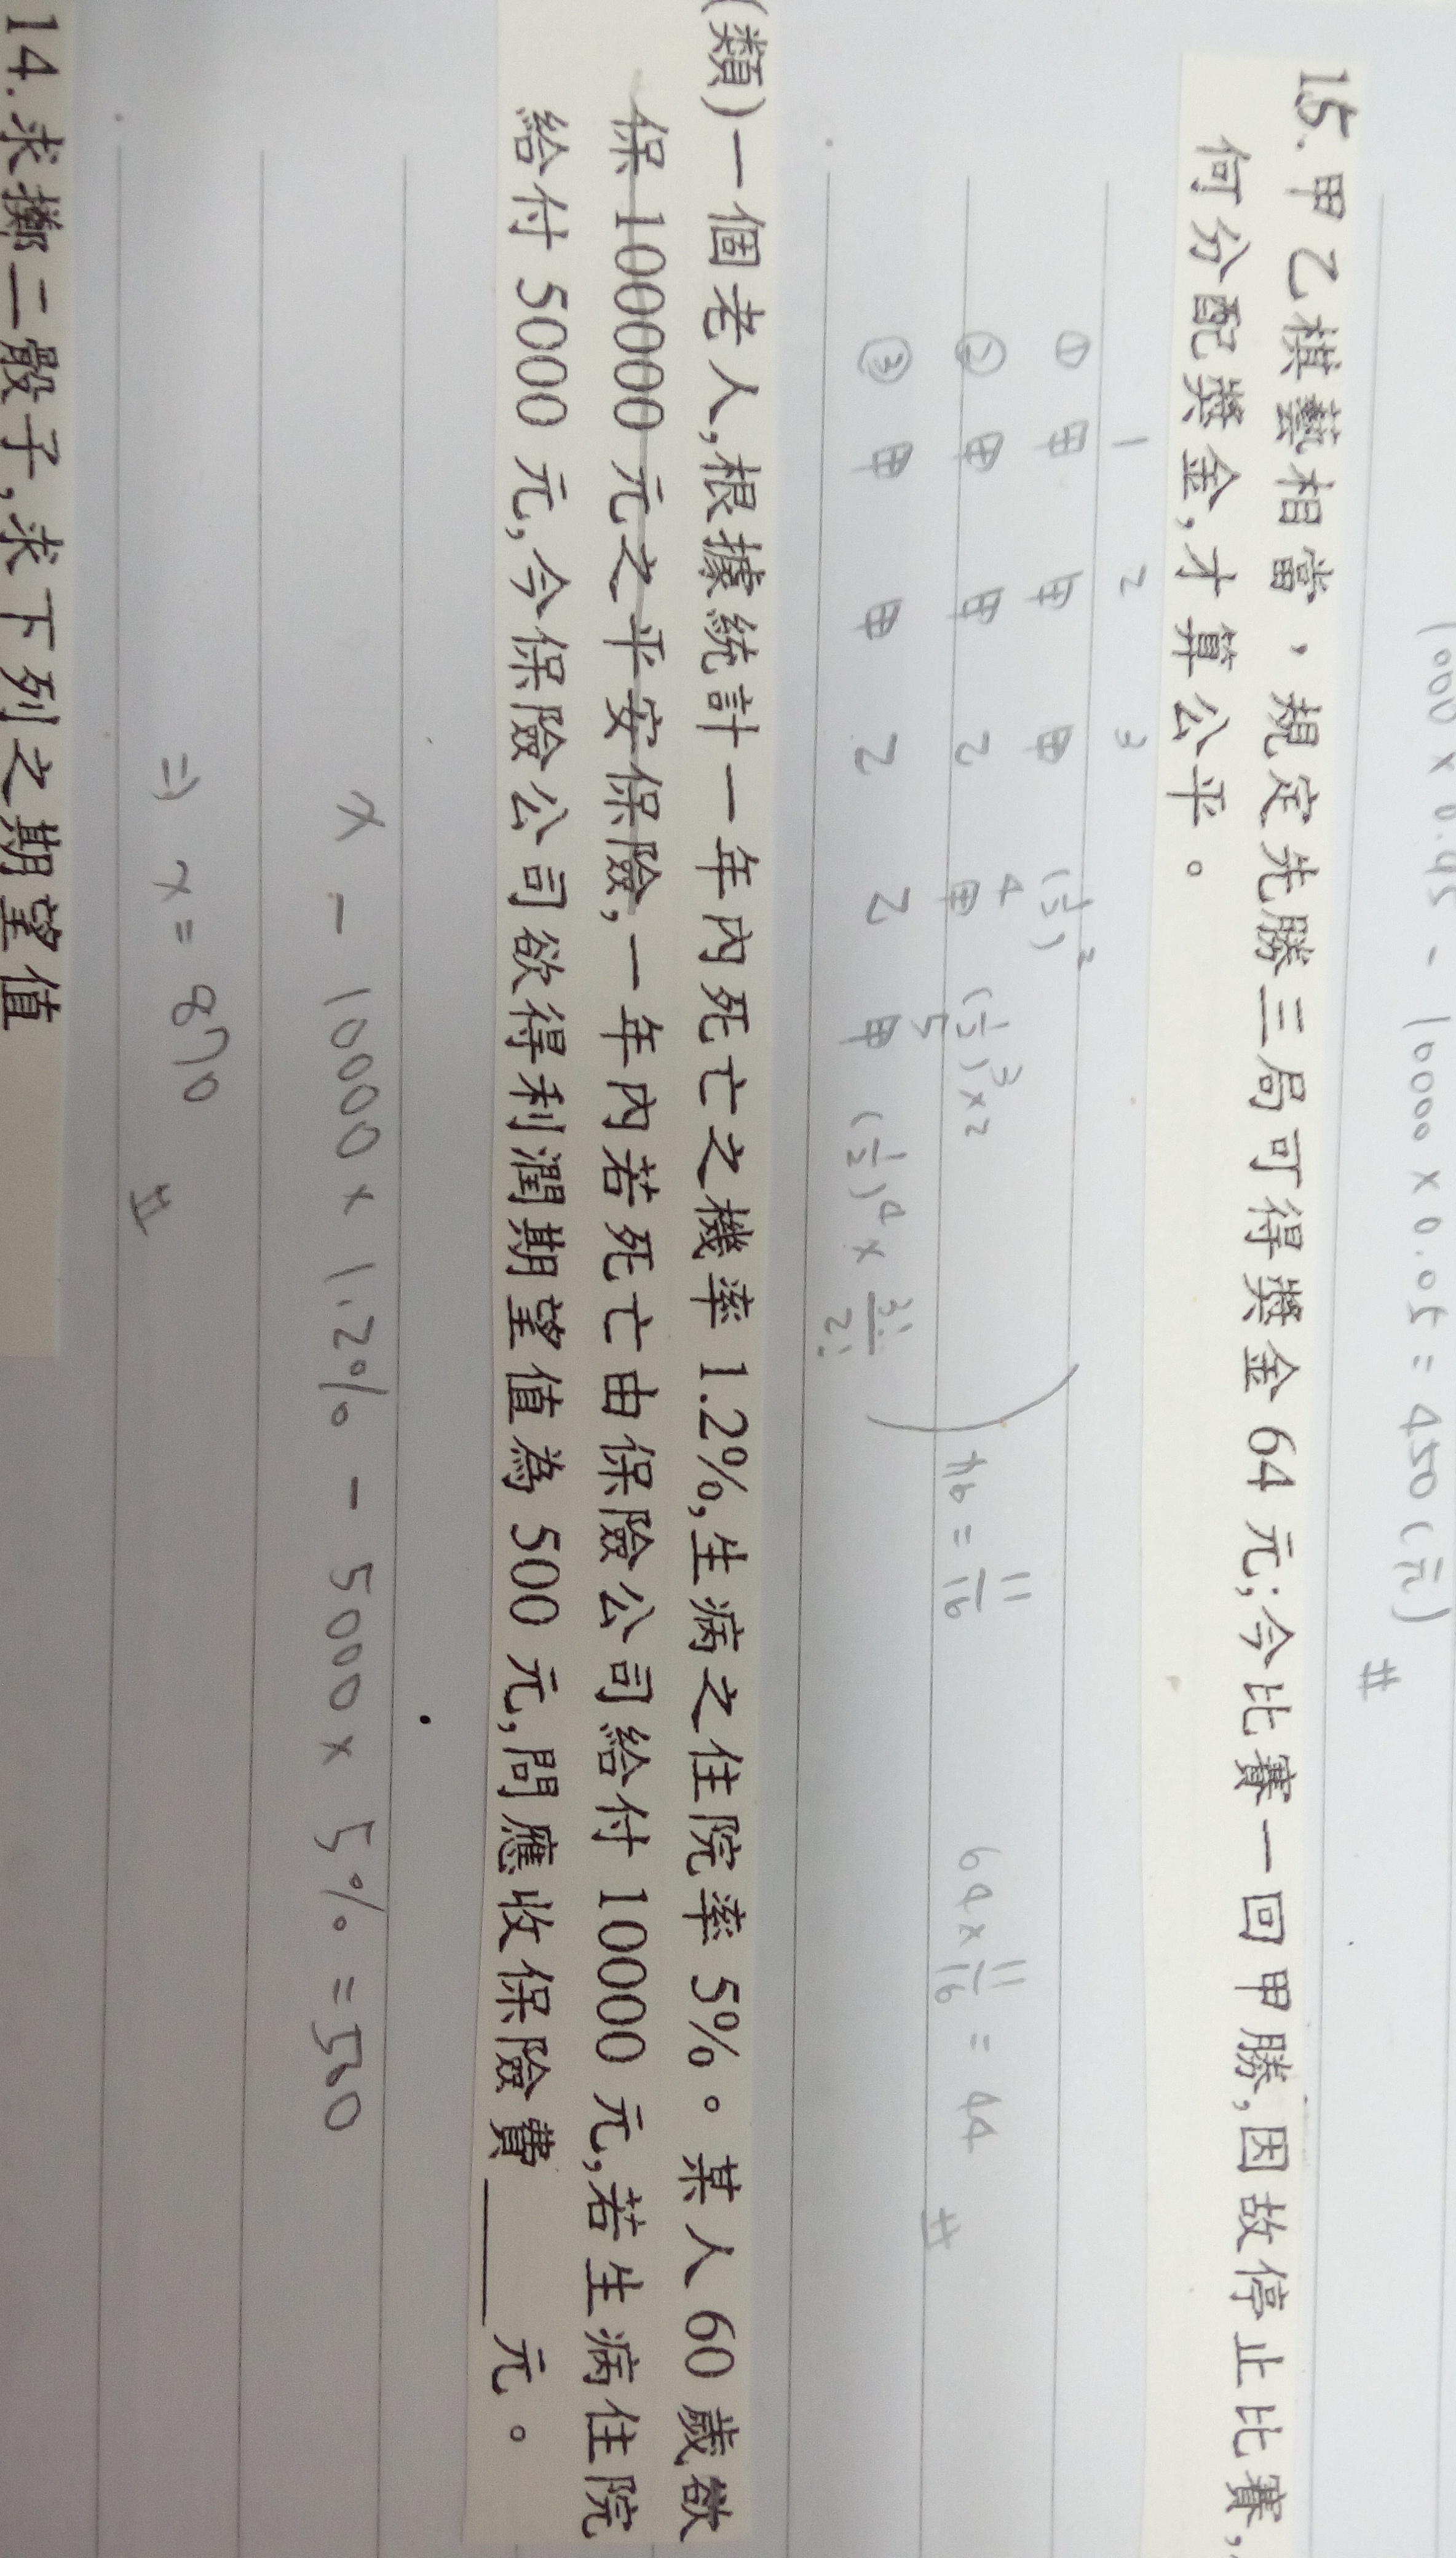 1000 × 0.95 - 10000 × 0.05 = 450 (元) #
15. 甲乙棋藝相當，規定先勝三局可得獎金 64 元;今比賽一回甲勝,因故停止比賽,
何分配獎金,才算公平。
1 2 3
① 甲 甲 甲 (1/2)²
4
② 甲 甲 乙 甲 (1/2)³×2
5
③ 甲 甲 乙 乙 甲 (1/2)⁴ × 3!/2!
= 11/16
64 × 11/16 = 44 #
(類)一個老人,根據統計一年內死亡之機率 1.2%,生病之住院率 5%。某人 60 歲欲
保 100000 元之平安保險,一年內若死亡由保險公司給付 10000 元,若生病住院
給付 5000 元,今保險公司欲得利潤期望值為 500 元,問應收保險費____元。
x - 10000 × 1.2% - 5000 × 5% = 500
⇒ x = 870 #
14. 求擲二骰子,求下列之期望值